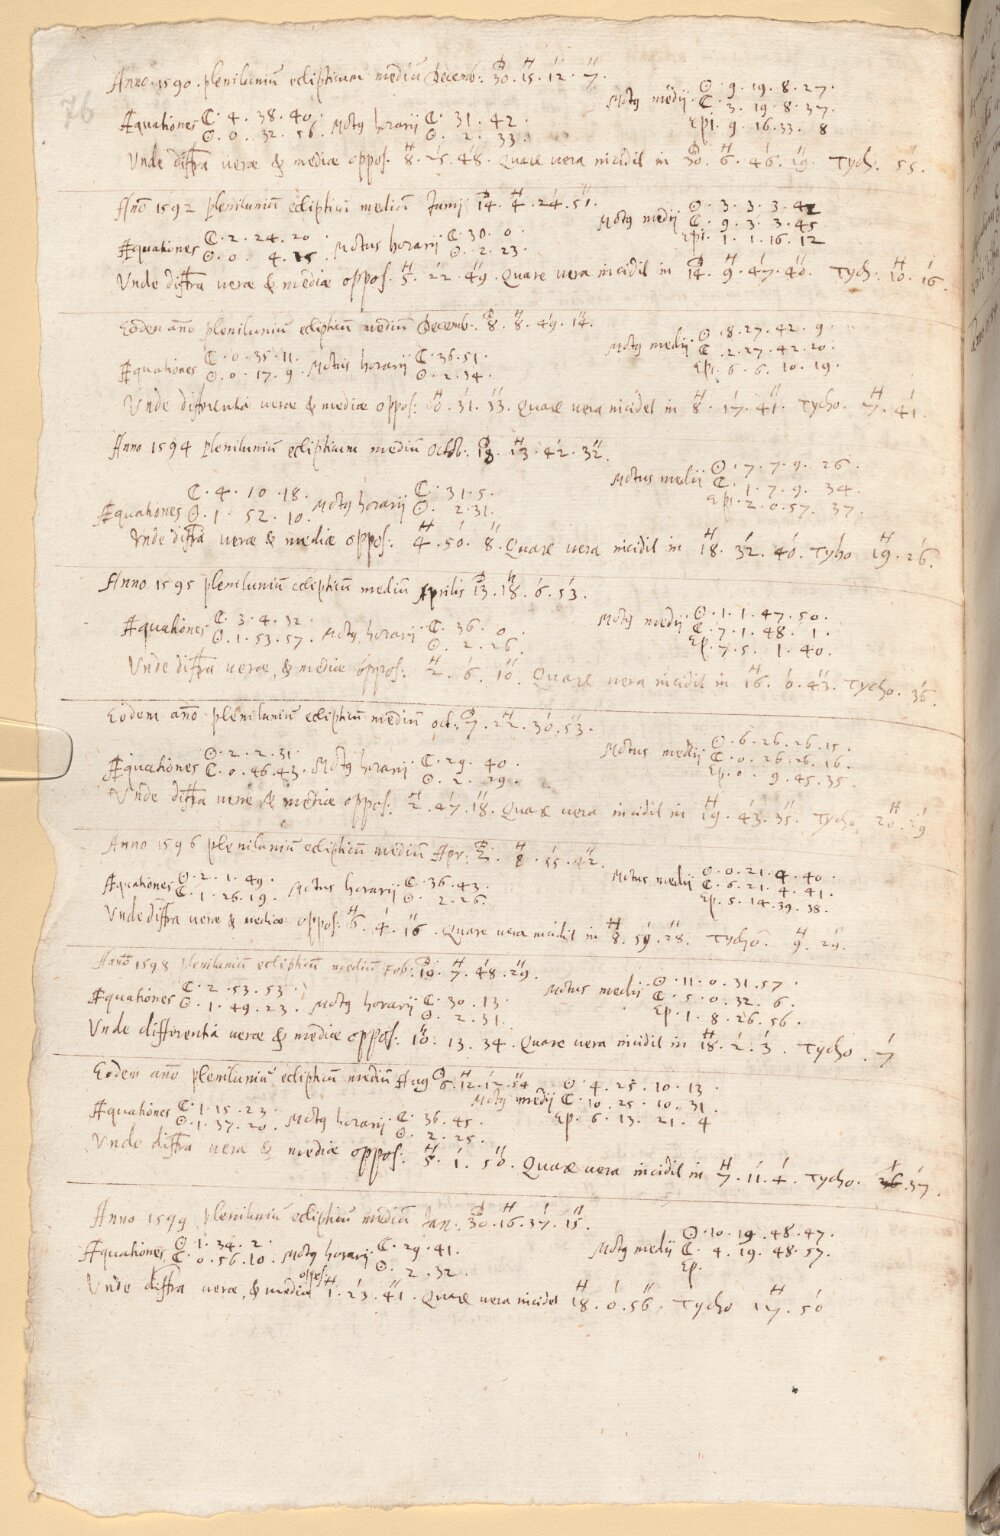 76
Anno 1590 plenilunium eclipticum mediũ Decemb: 30. 15. 12. 7.
Motꝯ medij ☉. 9. 19. 8. 27.
☾. 3. 19. 8. 37.
Epi. 9. 16. 33. 8
Æquationes ☾. 4. 38. 40. Motꝯ horarij ☾. 31. 42.
☉. 0. 32. 56. ☉. 2. 33.
Vnde diffr̃a veræ & mediæ oppos. 8. 25. 48. Quare vera incidit in 30. 6. 46. 19. Tych: 55.
Año 1592 pleniluniũ eclipticũ mediũ Junij 14. 4. 24. 51.
Motꝯ medij ☉. 3. 3. 3. 42
☾. 9. 3. 3. 45
Epi. 1. 1. 16. 12
Æquationes ☾. 2. 24. 20. Motus horarij ☾. 30. 0.
☉. 0. 4. 15. ☉. 2. 23.
Vnde diffr̃a veræ & mediæ oppos. 5. 22. 49. Quare vera incidit in 14. 9. 47. 40. Tych: 10. 16.
Eodem año pleniluniũ eclipticũ mediũ Decemb: 8. 8. 49. 14.
Motꝯ medij ☉. 8. 27. 42. 9.
☾. 2. 27. 42. 20.
Epi. 6. 6. 10. 19.
Æquationes ☾. 0. 35. 11. Motus horarij ☾. 36. 51.
☉. 0. 17. 9. ☉. 2. 34.
Vnde differentia veræ & mediæ oppos: 0. 31. 33. Quare vera incidet in 8. 17. 41. Tycho. 7. 41.
Anno 1594 plenilunium eclipticum mediũ Octob: 18. 13. 42. 32.
Motus medij ☉. 7. 7. 9. 26.
☾. 1. 7. 9. 34
Epi. 2. 0. 57. 37.
Æquationes ☾. 4. 10. 18. Motꝯ horarij ☾. 31. 5.
☉. 1. 52. 10. ☉. 2. 31.
Vnde diffr̃a veræ & mediæ oppos: 4. 50. 8. Quare vera incidit in 18. 32. 40. Tycho 19. 26.
Anno 1595 pleniluniũ eclipticũ mediũ Aprilis 13. 18. 6. 53.
Motꝯ medij ☉. 1. 1. 47. 50.
☾. 7. 1. 48. 1.
Ep. 7. 5. 1. 40.
Æquationes ☾. 3. 4. 32. Motꝯ horarij ☾. 36. 0.
☉. 1. 53. 57. ☉. 2. 26.
Vnde diffr̃a veræ, & mediæ oppos: 2. 6. 10. Quare vera incidit in 16. 0. 43. Tycho. 36.
Eodem año plenilunium eclipticũ mediũ Oct: 7. 22. 30. 53.
Motus medij ☉. 6. 26. 26. 15.
☾. 0. 26. 26. 16.
Ep. 0. 9. 45. 35.
Æquationes ☉. 2. 2. 31. Motꝯ horarij ☾. 29. 40.
☾. 0. 46. 43. ☉. 2. 29.
Vnde diffr̃a veræ & mediæ oppos: 2. 47. 18. Quare vera incidit in 19. 43. 35. Tycho 20. 29
Anno 1596 plenilunium eclipticũ mediũ Apr: 2. 8. 15. 42.
Motus medij ☉. 0. 21. 4. 40.
☾. 6. 21. 4. 41.
Ep. 5. 14. 39. 38.
Æquationes ☉. 2. 1. 49. Motus horarij ☾. 36. 43.
☾. 1. 26. 19. ☉. 2. 26.
Vnde diffr̃a veræ & mediæ oppos: 6. 4. 16. Quare vera incidit in 8. 59. 28. Tycho. 9. 29.
Anno 1598 plenilunium eclipticũ mediũ Feb: 10. 7. 48. 29.
Motus medij ☉. 11. 0. 31. 57.
☾. 5. 0. 32. 6.
Ep. 1. 8. 26. 56.
Æquationes ☾. 2. 53. 53. Motꝯ horarij ☾. 30. 13.
☉. 1. 49. 23. ☉. 2. 31.
Vnde differentia veræ & mediæ oppos: 10. 13. 34. Quare vera incidit in 18. 2. 3. Tycho. 7
Eodem año plenilunium eclipticũ mediũ Aug 6. 12. 12. 54
Motꝯ medij ☉. 4. 25. 10. 13.
☾. 10. 25. 10. 31.
Ep. 6. 13. 21. 4
Æquationes ☾. 1. 15. 23. Motꝯ horarij ☾. 36. 45.
☉. 1. 37. 20. ☉. 2. 25.
Vnde diffr̃a veræ & mediæ oppos: 5. 1. 50. Quare vera incidit in 7. 11. 4. Tycho. 37.
Anno 1599 plenilunium eclipticũ mediũ Jan: 30. 16. 37. 15.
Motꝯ medij ☉. 10. 19. 48. 47.
☾. 4. 19. 48. 57.
Ep.
Æquationes ☉. 1. 34. 2. Motꝯ horarij ☾. 29. 41.
☾. 0. 56. 10. ☉. 2. 32.
Vnde diffr̃a veræ, & mediæ oppos: 1. 23. 41. Quare vera incidet 18. 0. 56. Tycho 17. 50